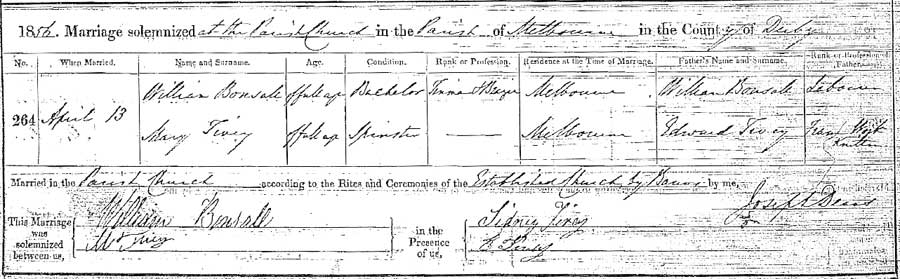 1856. Marriage solemnized at the Parish Church in the Parish of Melbourne in the County of Derby
No. When Married. Name and Surname. Age. Condition. Rank or Profession. Residence at the Time of Marriage. Father's Name and Surname. Rank or Profession of Father.
264 April 13 William Bonsall of full age Bachelor Melbourne William Bonsall Labourer
Mary Tivey of full age Spinster Melbourne Edward Tivey Fram Work
Knitter
Married in the Parish Church according to the Rites and Ceremonies of the Established Church by Banns by me,
Joseph Deans
This Marriage was solemnized between us, William Bonsall
in the Presence of us, Sidney Tivey